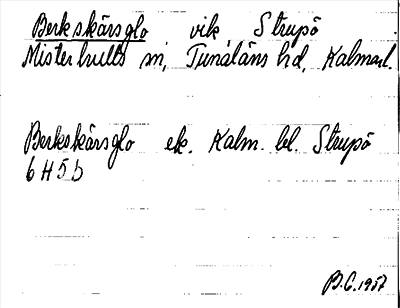 Berkskärsglo vik Strupö
Misterhults sn, Tunaläns hd, Kalmar l.
Berkskärsglo ek. Kalm. bl. Strupö
6H5b
B.C. 1957